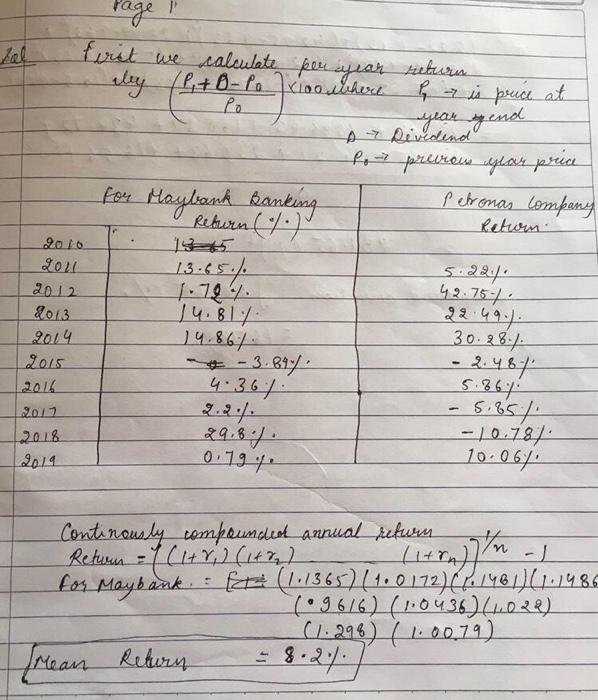 Page 1
Sol First we calculate per year return
by (P1 + D - P0 / P0) × 100 where P1 → is price at
year end
D → Dividend
P0 → previous year price
For Maybank Banking Petronas Company
Return (%) Return.
2010
2011 13.65% 5.22%
2012 1.72% 42.75%
2013 14.81% 22.49%
2014 14.86% 30.28%
2015 - 3.84% - 2.48%
2016 4.36% 5.86%
2017 2.2% - 5.85%
2018 29.8% -10.78%
2019 0.79% 10.06%
Continously compounded annual return
Return = [(1+r1) (1+r2) (1+rn)]^1/n - 1
For Maybank. = (1.1365) (1.0172) (1.1481) (1.1486
(.9616) (1.0436) (1.022)
(1.298) (1.0079)
Mean Return = 8.2%